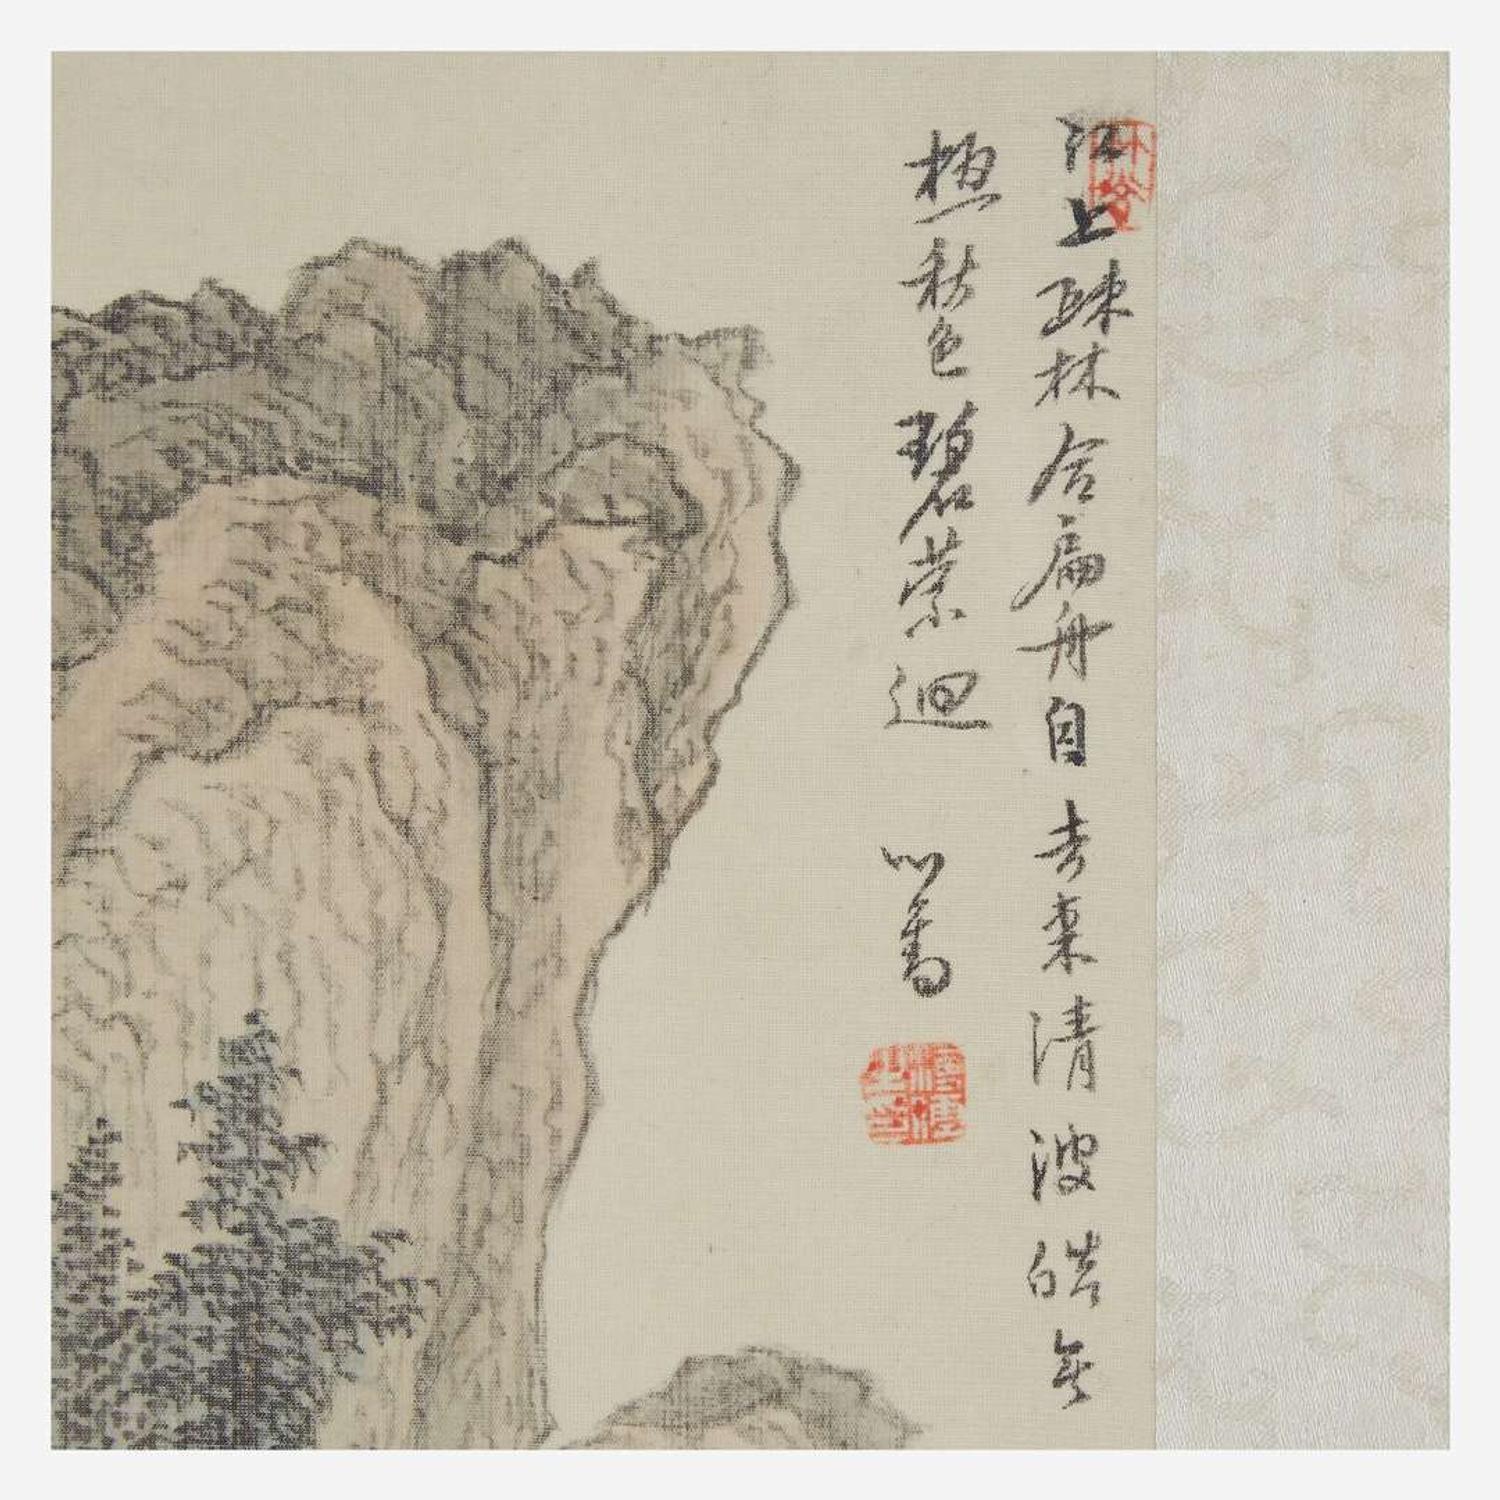 江上疎林合扁舟自去來清波皓無
極秋色碧縈迴
心畬